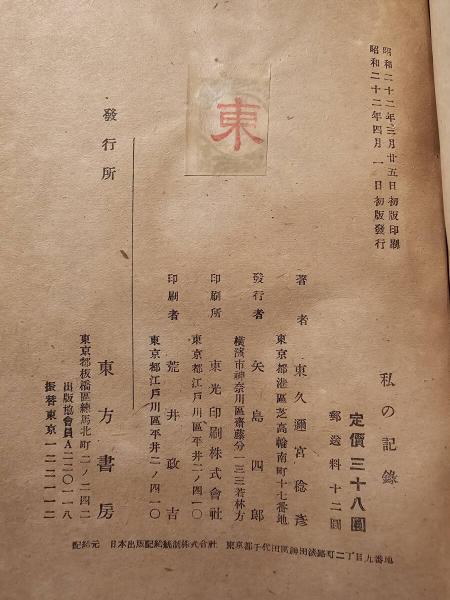 昭和二十二年三月廿五日初版印刷
昭和二十二年四月一日初版發行
私の記錄
定價三十八圓
郵送料十二圓
著者 東久邇宮稔彦
東京都港區芝高輪南町十七番地
發行者 矢島四郎
橫濱市神奈川區齋藤分一三三若林方
印刷所 東光印刷株式會社
東京都江戸川區平井二ノ四一〇
印刷者 荒井政吉
東京都江戸川區平井二ノ四一〇
東
發行所
東方書房
東京都板橋區練馬北町二ノ二四二
出版協會員A二二〇一一八
振替東京一二二一一二
配給元 日本出版配給統制株式会社 東京都千代田區神田淡路町二丁目九番地